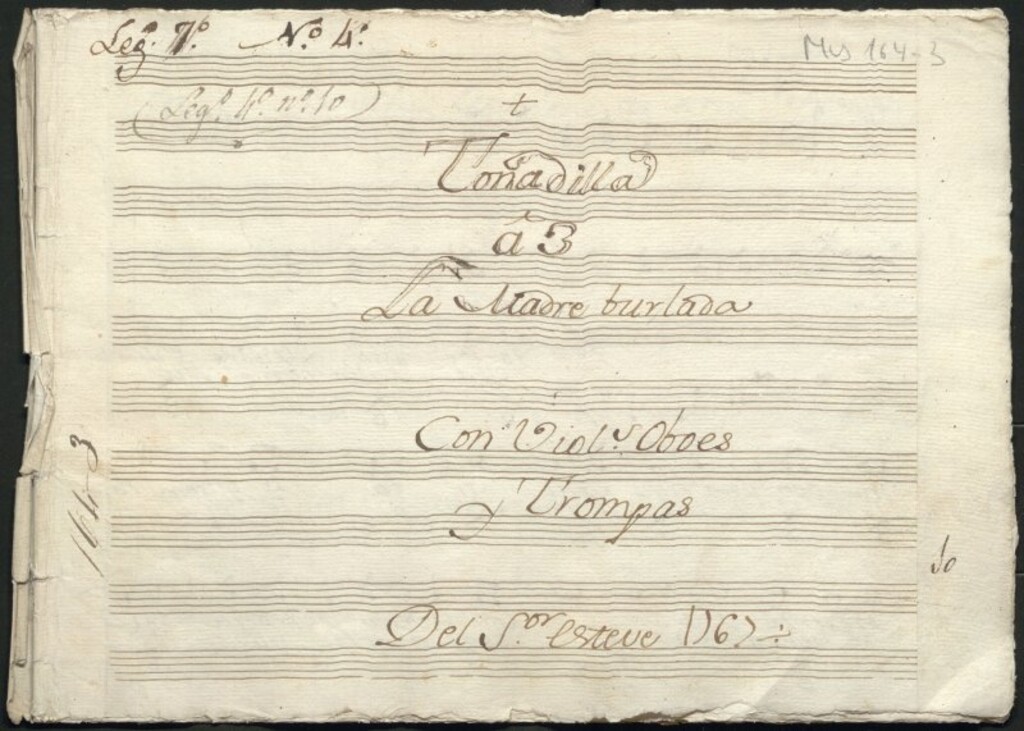 Leg. 7º. Nº 4º.
Mus 164-3
(Legº. 4º. nº. 10)
+
Tonadilla
á 3
La Madre burlada
Con Viol.s Oboes
y Trompas
164-3
10
Del S.or Esteve 1767